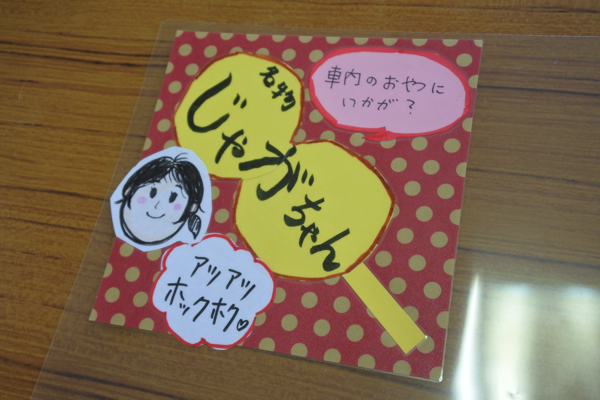 名物
じゃがちゃん
車内のおやつに
いかが?
アツアツ
ホックホク♡